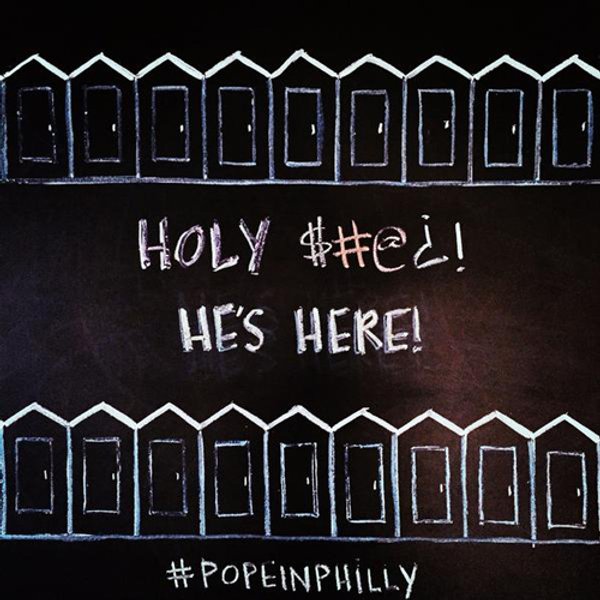 HOLY $#@¿!
HE'S HERE!
#POPEINPHILLY